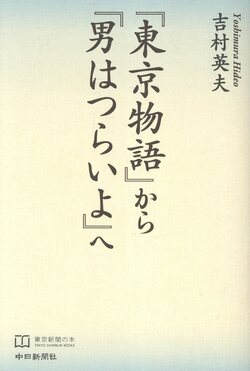 『東京物語』から
『男はつらいよ』へ
吉村英夫
Yoshimura Hideo
東京新聞の本
TOKYO SHIMBUN BOOKS
中日新聞社